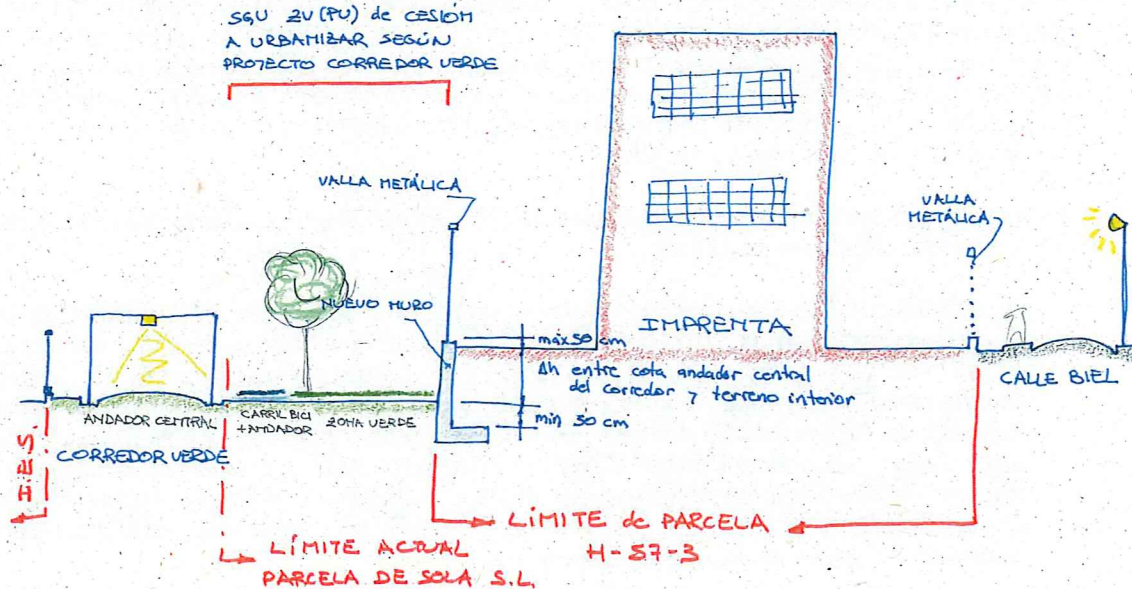 SGU ZV(PU) de CESIÓN
A URBANIZAR SEGÚN
PROYECTO CORREDOR VERDE
VALLA METÁLICA
VALLA
METÁLICA
NUEVO MURO
IMPRENTA
máx 50 cm
Δh entre cota andador central
del corredor y terreno interior
min 50 cm
CALLE BIEL
ANDADOR CENTRAL
CARRIL BICI
+ANDADOR
ZONA VERDE
CORREDOR VERDE
I.E.S.
LÍMITE de PARCELA
H-57-3
LÍMITE ACTUAL
PARCELA DE SOLA S.L.